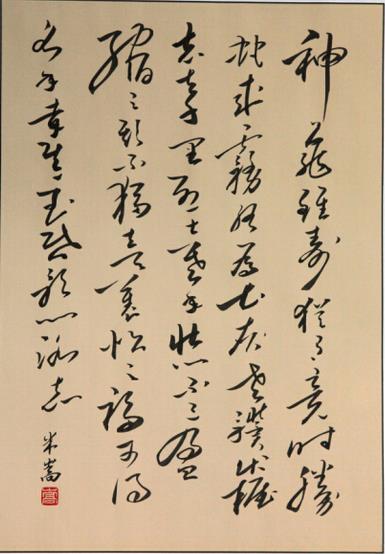 神龜雖壽猶有竟時騰
蛇乘霧終為土灰老驥伏櫪
志在千里烈士暮年壯心不已盈
縮之期不獨在天養怡之福可得
永年幸甚至哉歌以詠志
嵩